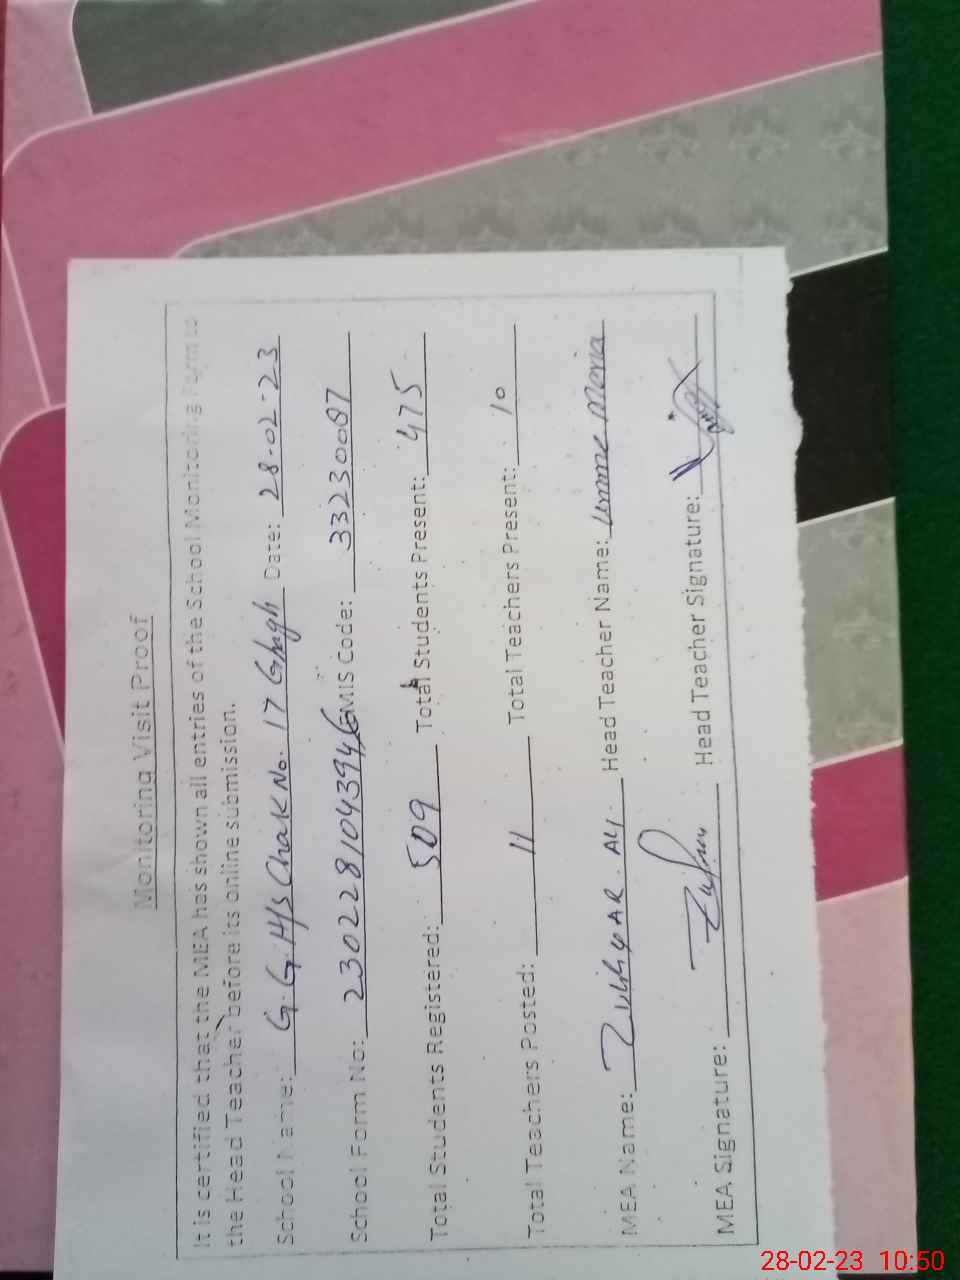 Monitoring Visit Proof
It is certified that the MEA has shown all entries of the School Monitoring Form to
the Head Teacher before its online submission.
School Name: G.G.H/S Chak No. 17 Ghagh Date: 28-02-23
School Form No: 230228104394 EMIS Code: 33230087
Total Students Registered: 509 Total Students Present: 475
Total Teachers Posted: 11 Total Teachers Present: 10
MEA Name: Zulifiqar Ali Head Teacher Name: Umme Maria
MEA Signature: Head Teacher Signature:
28-02-23 10:50